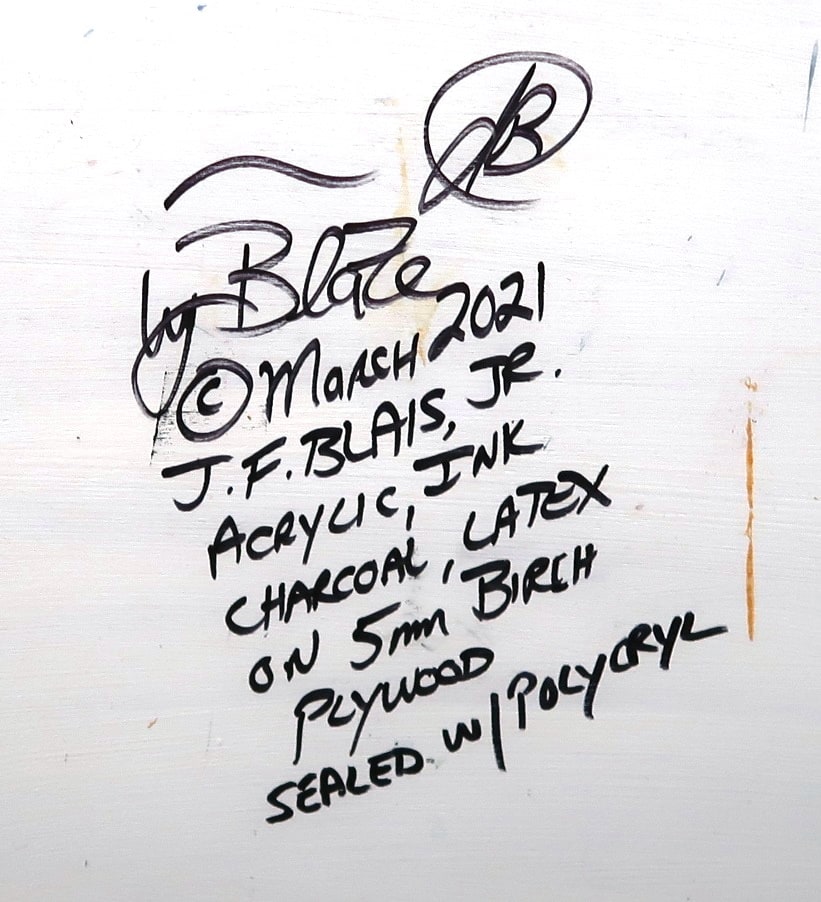 JB
by Blaze
© MARCH 2021
J.F. BLAIS, JR.
ACRYLIC, INK
CHARCOAL, LATEX
ON 5mm BIRCH
PLYWOOD
SEALED w/ POLYCRYL